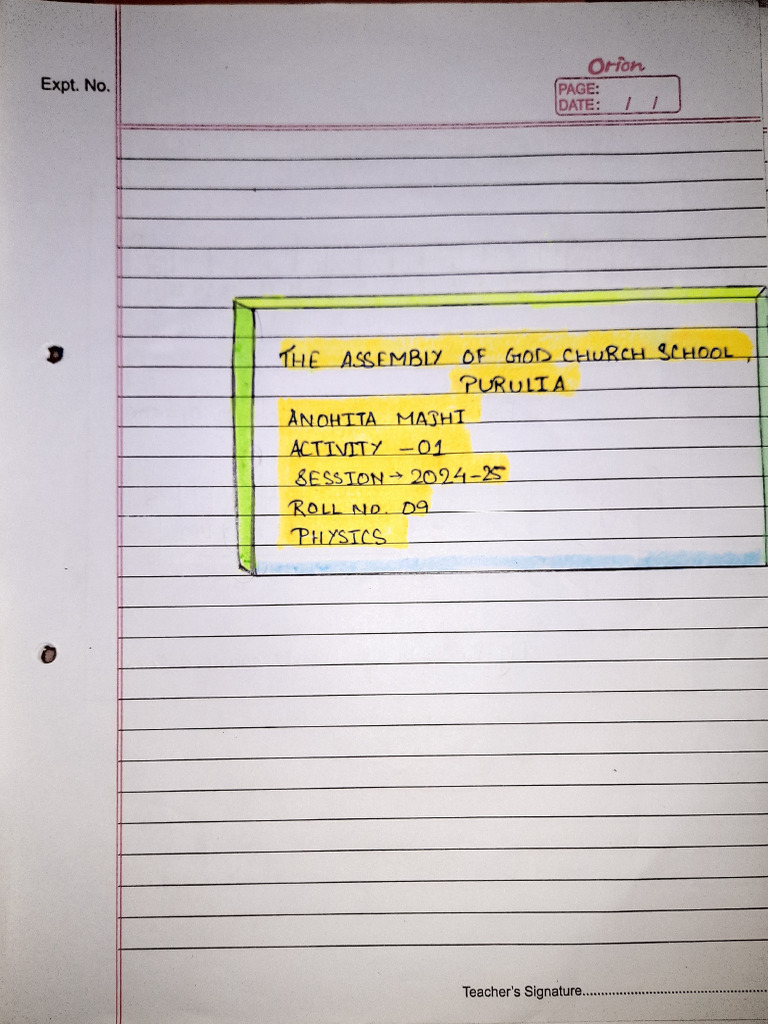 Orion
Expt. No.
PAGE:
DATE: / /
THE ASSEMBLY OF GOD CHURCH SCHOOL,
PURULIA
ANOHITA MAJHI
ACTIVITY -01
SESSION → 2024-25
ROLL NO. 09
PHYSICS
Teacher's Signature................................................